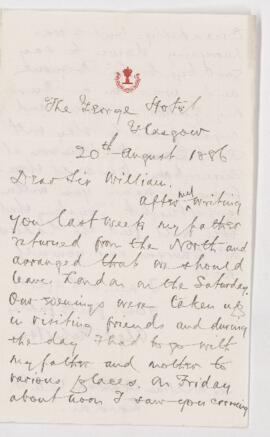 The George Hotel
Glasgow
20th August 1886
Dear Sir William.
After my writing
you last week my father
returned from the North and
arranged that we should
leave London on the Saturday.
Our evenings were taken up
in visiting friends and during
the day I had to go with
my father and mother to
various places. On Friday
about noon I saw you crossing